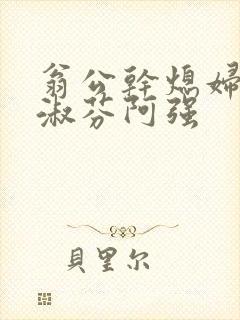 翁公幹熄婦
淑芬阿强
貝里尔